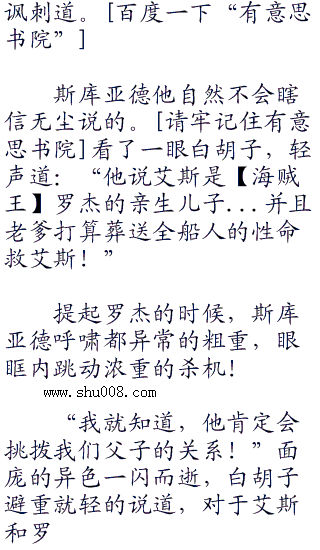 讽刺道。[百度一下“有意思
书院”]
斯库亚德他自然不会瞎
信无尘说的。[请牢记住有意
思书院]看了一眼白胡子，轻
声道：“他说艾斯是【海贼
王】罗杰的亲生儿子...并且
老爹打算葬送全船人的性命
救艾斯！”
提起罗杰的时候，斯库
亚德呼啸都异常的粗重，眼
眶内跳动浓重的杀机！
www.shu008.com
“我就知道，他肯定会
挑拨我们父子的关系！”面
庞的异色一闪而逝，白胡子
避重就轻的说道，对于艾斯
和罗